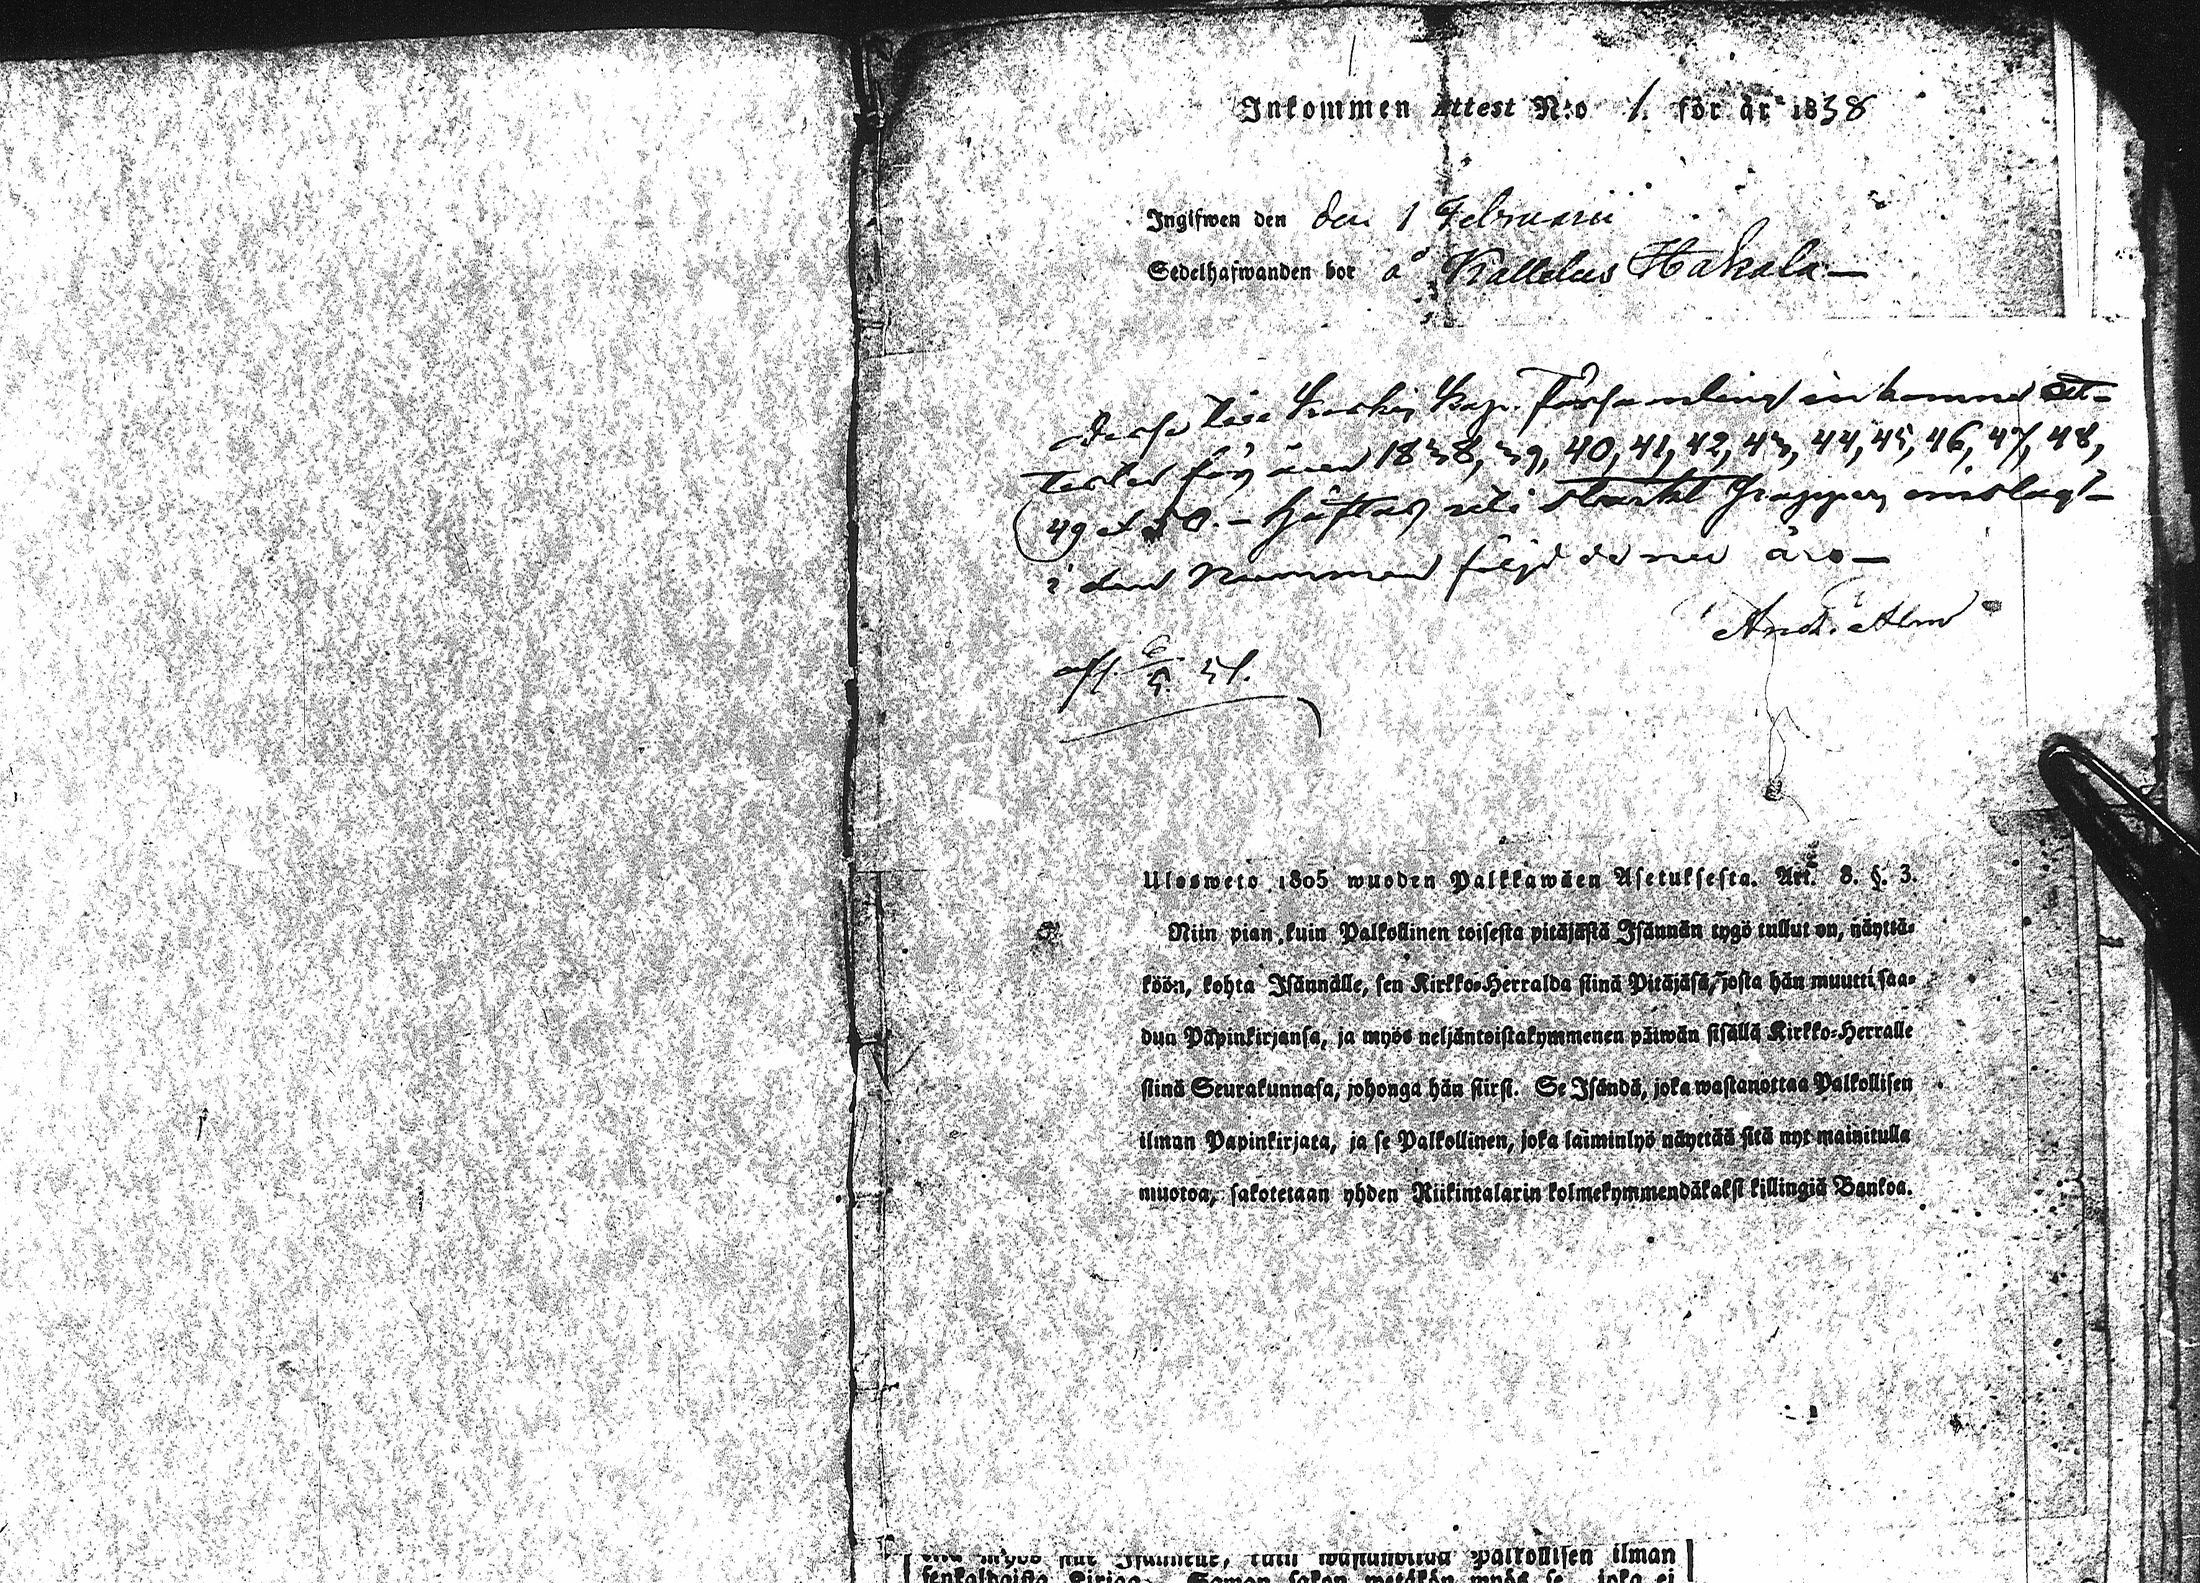 Inkommen Attest N:o 1. för år 1838
Ingifwen den den 1 Februarii
Sedelhafwanden bor å Kallelas Hakala
Dessa församling inkomne At-
tester för åren 1838, 39, 40, 41, 42, 43, 44, 45, 46, 47, 48,
49 & 50. – häftas uti starkt Papper, omslag
i den Nummer följd de nu äro –
And. Alm
5. 51.
Ulosweto 1805 wuoden Palkkawäen Asetuksesta. Art. 8. §. 3.
Niin pian kuin Palkollinen toisesta pitäjästä Isännän tygö tullut on, näyttä-
köön, kohta Isännälle, sen Kirkko-Herralda siinä Pitäjäsä, josta hän muutti saa-
dun Papinkirjansa, ja myös neljäntoistakymmenen päiwän sisällä Kirkko-Herralle
siinä Seurakunnasa, johonga hän siirsi. Se Isändä, joka wastanottaa Palkollisen
ilman Papinkirjata, ja se Palkollinen, joka laiminlyö näyttää sitä nyt mainitulla
muotoa, sakotetaan yhden Riikintalarin kolmekymmendäkaksi killingiä Bankoa.
myös Isännelle, wastanottaa Palkollisen ilman
senkaldaista Kirjaa. Saman sakon wetäkön myös se, joka ei